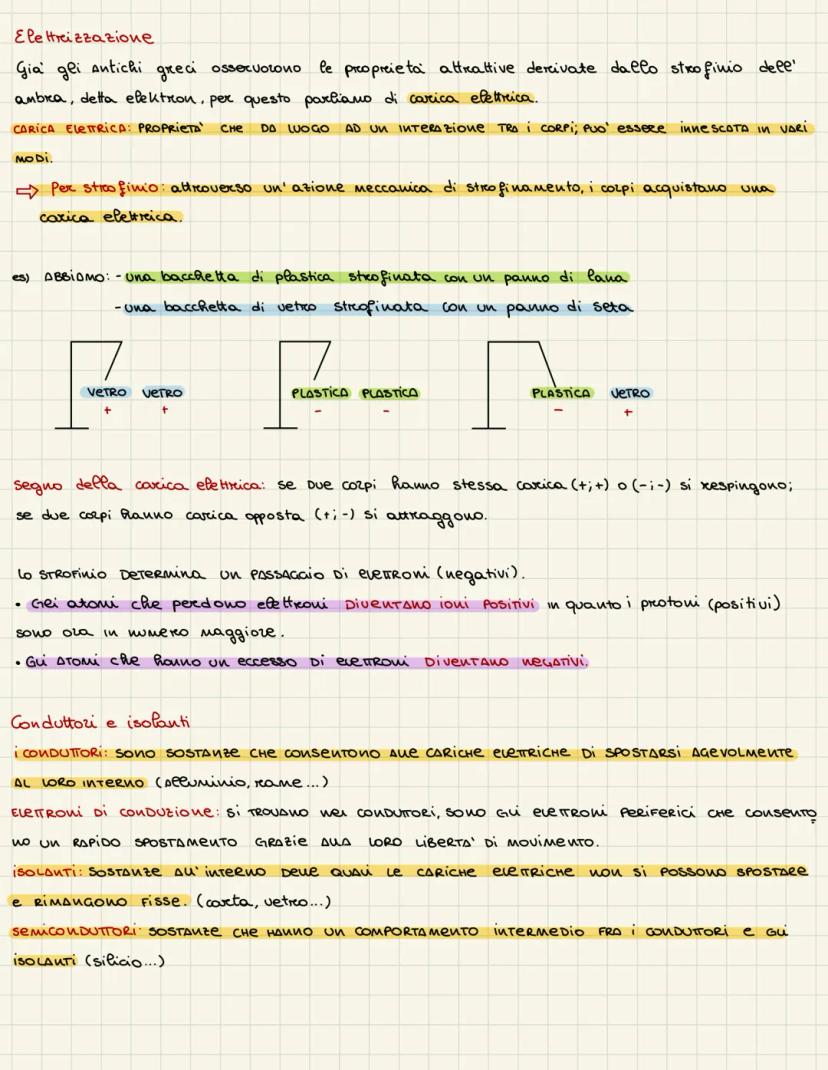 Elettrizzazione
Già gli antichi greci osservarono le proprietà attrattive derivate dallo strofinio dell'
ambra, detta elektron, per questo parliamo di carica elettrica.
CARICA ELETTRICA: PROPRIETA' CHE DA LUOGO AD UN INTERAZIONE TRA I CORPI; PUO' ESSERE INNESCATA IN VARI
MODI.
⇒ Per strofinio: attraverso un'azione meccanica di strofinamento, i corpi acquistano una
carica elettrica.
es) ABBIAMO: - una bacchetta di plastica strofinata con un panno di lana
- una bacchetta di vetro strofinata con un panno di seta
VETRO VETRO PLASTICA PLASTICA PLASTICA VETRO
+ + - - - +
Segno della carica elettrica: se due corpi hanno stessa carica (+;+) o (-;-) si respingono;
se due corpi hanno carica opposta (+;-) si attraggono.
LO STROFINIO DETERMINA UN PASSAGGIO DI ELETTRONI (negativi).
• Gli atomi che perdono elettroni DIVENTANO IONI POSITIVI in quanto i protoni (positivi)
sono ora in numero maggiore.
• GLI ATOMI che hanno UN eccesso DI ELETTRONI DIVENTANO NEGATIVI.
Conduttori e isolanti
i CONDUTTORI: SONO SOSTANZE CHE CONSENTONO ALLE CARICHE ELETTRICHE DI SPOSTARSI AGEVOLMENTE
AL LORO INTERNO (alluminio, rame...)
ELETTRONI DI CONDUZIONE: SI TROVANO NEI CONDUTTORI, SONO GLI ELETTRONI PERIFERICI CHE CONSENTO
NO UN RAPIDO SPOSTAMENTO GRAZIE ALLA LORO LIBERTA' DI MOVIMENTO.
ISOLANTI: SOSTANZE ALL'INTERNO DELLE QUALI LE CARICHE ELETTRICHE NON SI POSSONO SPOSTARE
E RIMANGONO FISSE. (carta, vetro...)
SEMICONDUTTORI: SOSTANZE CHE HANNO UN COMPORTAMENTO INTERMEDIO FRA I CONDUTTORI E GLI
ISOLANTI (silicio...)